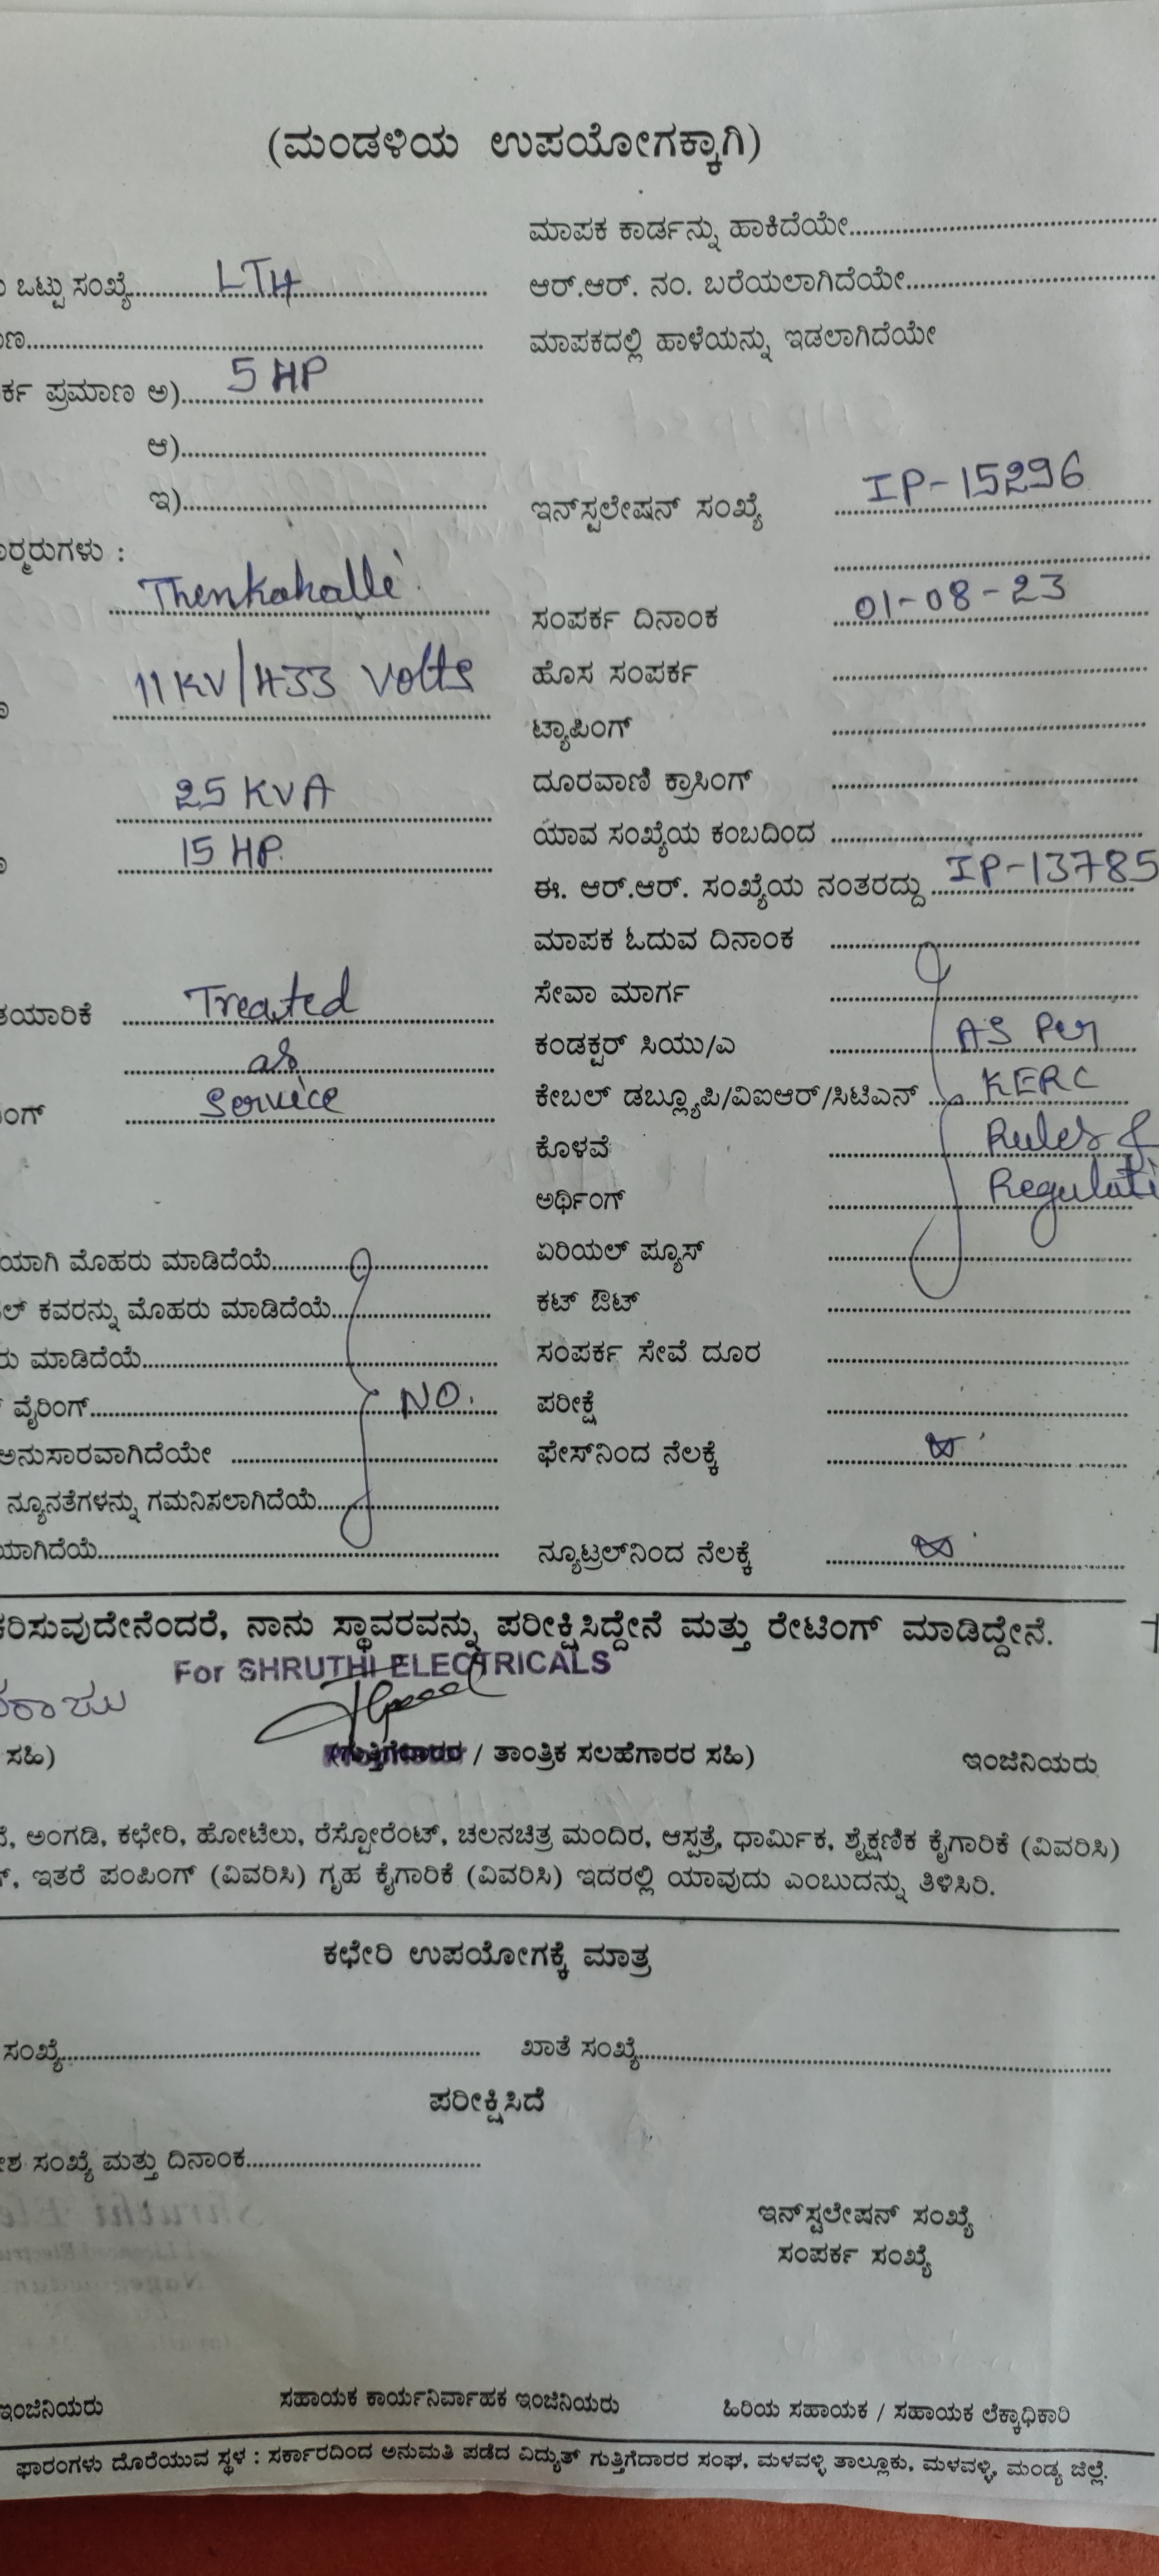 (ಮಂಡಳಿಯ ಉಪಯೋಗಕ್ಕಾಗಿ)
ಮಾಪಕ ಕಾರ್ಡನ್ನು ಹಾಕಿದೆಯೇ
ಒಟ್ಟು ಸಂಖ್ಯೆ LT4
ಆರ್.ಆರ್. ನಂ. ಬರೆಯಲಾಗಿದೆಯೇ
ಮಾಪಕದಲ್ಲಿ ಹಾಳೆಯನ್ನು ಇಡಲಾಗಿದೆಯೇ
ಪ್ರಮಾಣ ಅ) 5 HP
ಆ)
ಇ)
ಇನ್‌ಸ್ಟಲೇಷನ್ ಸಂಖ್ಯೆ IP-15296
Thenkahalli
ಸಂಪರ್ಕ ದಿನಾಂಕ 01-08-23
11 KV/433 Volts
ಹೊಸ ಸಂಪರ್ಕ
ಟ್ಯಾಪಿಂಗ್
25 KVA
ದೂರವಾಣಿ ಕ್ರಾಸಿಂಗ್
15 HP
ಯಾವ ಸಂಖ್ಯೆಯ ಕಂಬದಿಂದ
ಈ. ಆರ್.ಆರ್. ಸಂಖ್ಯೆಯ ನಂತರದ್ದು IP-13785
ಮಾಪಕ ಓದುವ ದಿನಾಂಕ
ತಯಾರಿಕೆ Treated
ಸೇವಾ ಮಾರ್ಗ
as
ಕಂಡಕ್ಟರ್ ಸಿಯು/ಎ AS Per
Service
ಕೇಬಲ್ ಡಬ್ಲ್ಯೂಪಿ/ವಿಐಆರ್/ಸಿಟಿಎನ್ KERC
ಕೊಳವೆ Rules &
ಅರ್ಥಿಂಗ್ Regulati
ಮೊಹರು ಮಾಡಿದೆಯೆ
ಏರಿಯಲ್ ಪ್ಯೂಸ್
ಕವರನ್ನು ಮೊಹರು ಮಾಡಿದೆಯೆ
ಕಟ್ ಔಟ್
ಮಾಡಿದೆಯೆ
ಸಂಪರ್ಕ ಸೇವೆ ದೂರ
ವೈರಿಂಗ್ NO.
ಪರೀಕ್ಷೆ
ಅನುಸಾರವಾಗಿದೆಯೇ
ಫೇಸ್‌ನಿಂದ ನೆಲಕ್ಕೆ
ನ್ಯೂನತೆಗಳನ್ನು ಗಮನಿಸಲಾಗಿದೆಯೆ
ನ್ಯೂಟ್ರಲ್‌ನಿಂದ ನೆಲಕ್ಕೆ
ನಾನು ಸ್ಥಾವರವನ್ನು ಪರೀಕ್ಷಿಸಿದ್ದೇನೆ ಮತ್ತು ರೇಟಿಂಗ್ ಮಾಡಿದ್ದೇನೆ.
For SHRUTHI ELECTRICALS
ಸಹಿ)
(ಗುತ್ತಿಗೆದಾರರ / ತಾಂತ್ರಿಕ ಸಲಹೆಗಾರರ ಸಹಿ)
ಇಂಜಿನಿಯರು
ಅಂಗಡಿ, ಕಛೇರಿ, ಹೋಟೆಲು, ರೆಸ್ಟೋರೆಂಟ್, ಚಲನಚಿತ್ರ ಮಂದಿರ, ಆಸ್ಪತ್ರೆ, ಧಾರ್ಮಿಕ, ಶೈಕ್ಷಣಿಕ ಕೈಗಾರಿಕೆ (ವಿವರಿಸಿ)
ಇತರೆ ಪಂಪಿಂಗ್ (ವಿವರಿಸಿ) ಗೃಹ ಕೈಗಾರಿಕೆ (ವಿವರಿಸಿ) ಇದರಲ್ಲಿ ಯಾವುದು ಎಂಬುದನ್ನು ತಿಳಿಸಿರಿ.
ಕಛೇರಿ ಉಪಯೋಗಕ್ಕೆ ಮಾತ್ರ
ಸಂಖ್ಯೆ
ಖಾತೆ ಸಂಖ್ಯೆ
ಪರೀಕ್ಷಿಸಿದೆ
ಸಂಖ್ಯೆ ಮತ್ತು ದಿನಾಂಕ
ಇನ್‌ಸ್ಟಲೇಷನ್ ಸಂಖ್ಯೆ
ಸಂಪರ್ಕ ಸಂಖ್ಯೆ
ಇಂಜಿನಿಯರು
ಸಹಾಯಕ ಕಾರ್ಯನಿರ್ವಾಹಕ ಇಂಜಿನಿಯರು
ಹಿರಿಯ ಸಹಾಯಕ / ಸಹಾಯಕ ಲೆಕ್ಕಾಧಿಕಾರಿ
ಫಾರಂಗಳು ದೊರೆಯುವ ಸ್ಥಳ : ಸರ್ಕಾರದಿಂದ ಅನುಮತಿ ಪಡೆದ ವಿದ್ಯುತ್ ಗುತ್ತಿಗೆದಾರರ ಸಂಘ, ಮಳವಳ್ಳಿ ತಾಲ್ಲೂಕು, ಮಳವಳ್ಳಿ, ಮಂಡ್ಯ ಜಿಲ್ಲೆ.